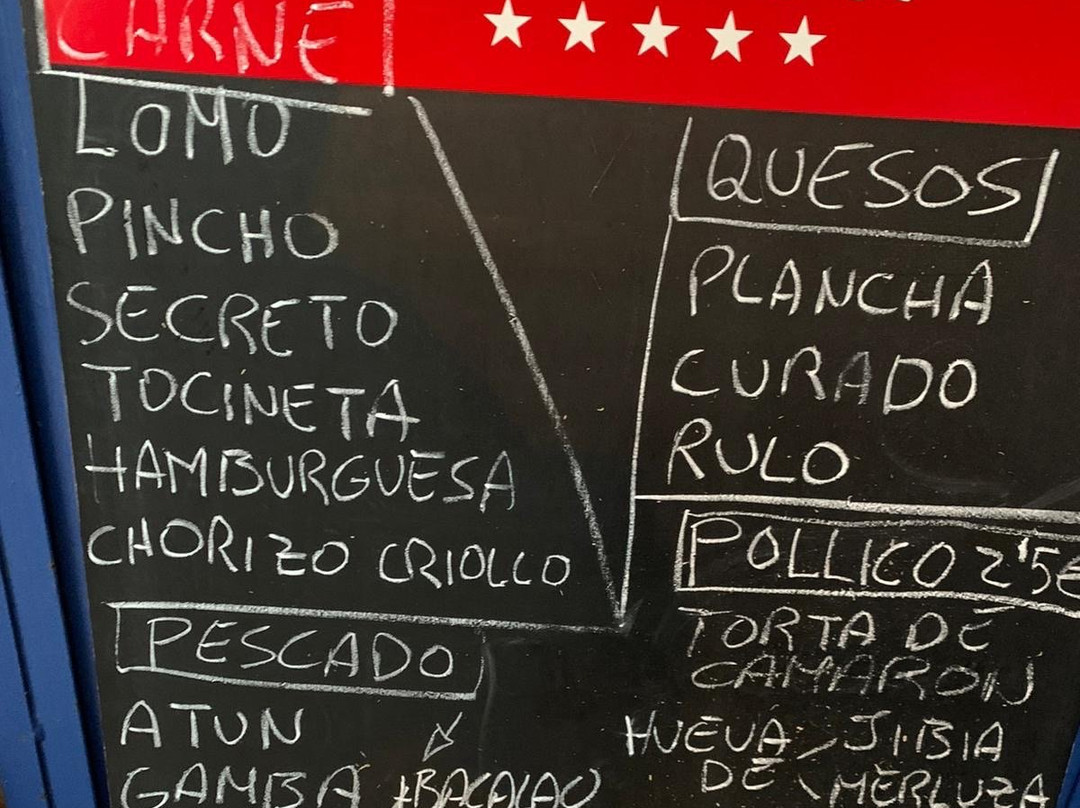 CARNE
LOMO
PINCHO
SECRETO
TOCINETA
HAMBURGUESA
CHORIZO CRIOLLO
PESCADO
ATUN
GAMBA +BACALAO
QUESOS
PLANCHA
CURADO
RULO
POLLICO 2'5€
TORTA DE
CAMARON
HUEVA JIBIA
DE MERLUZA